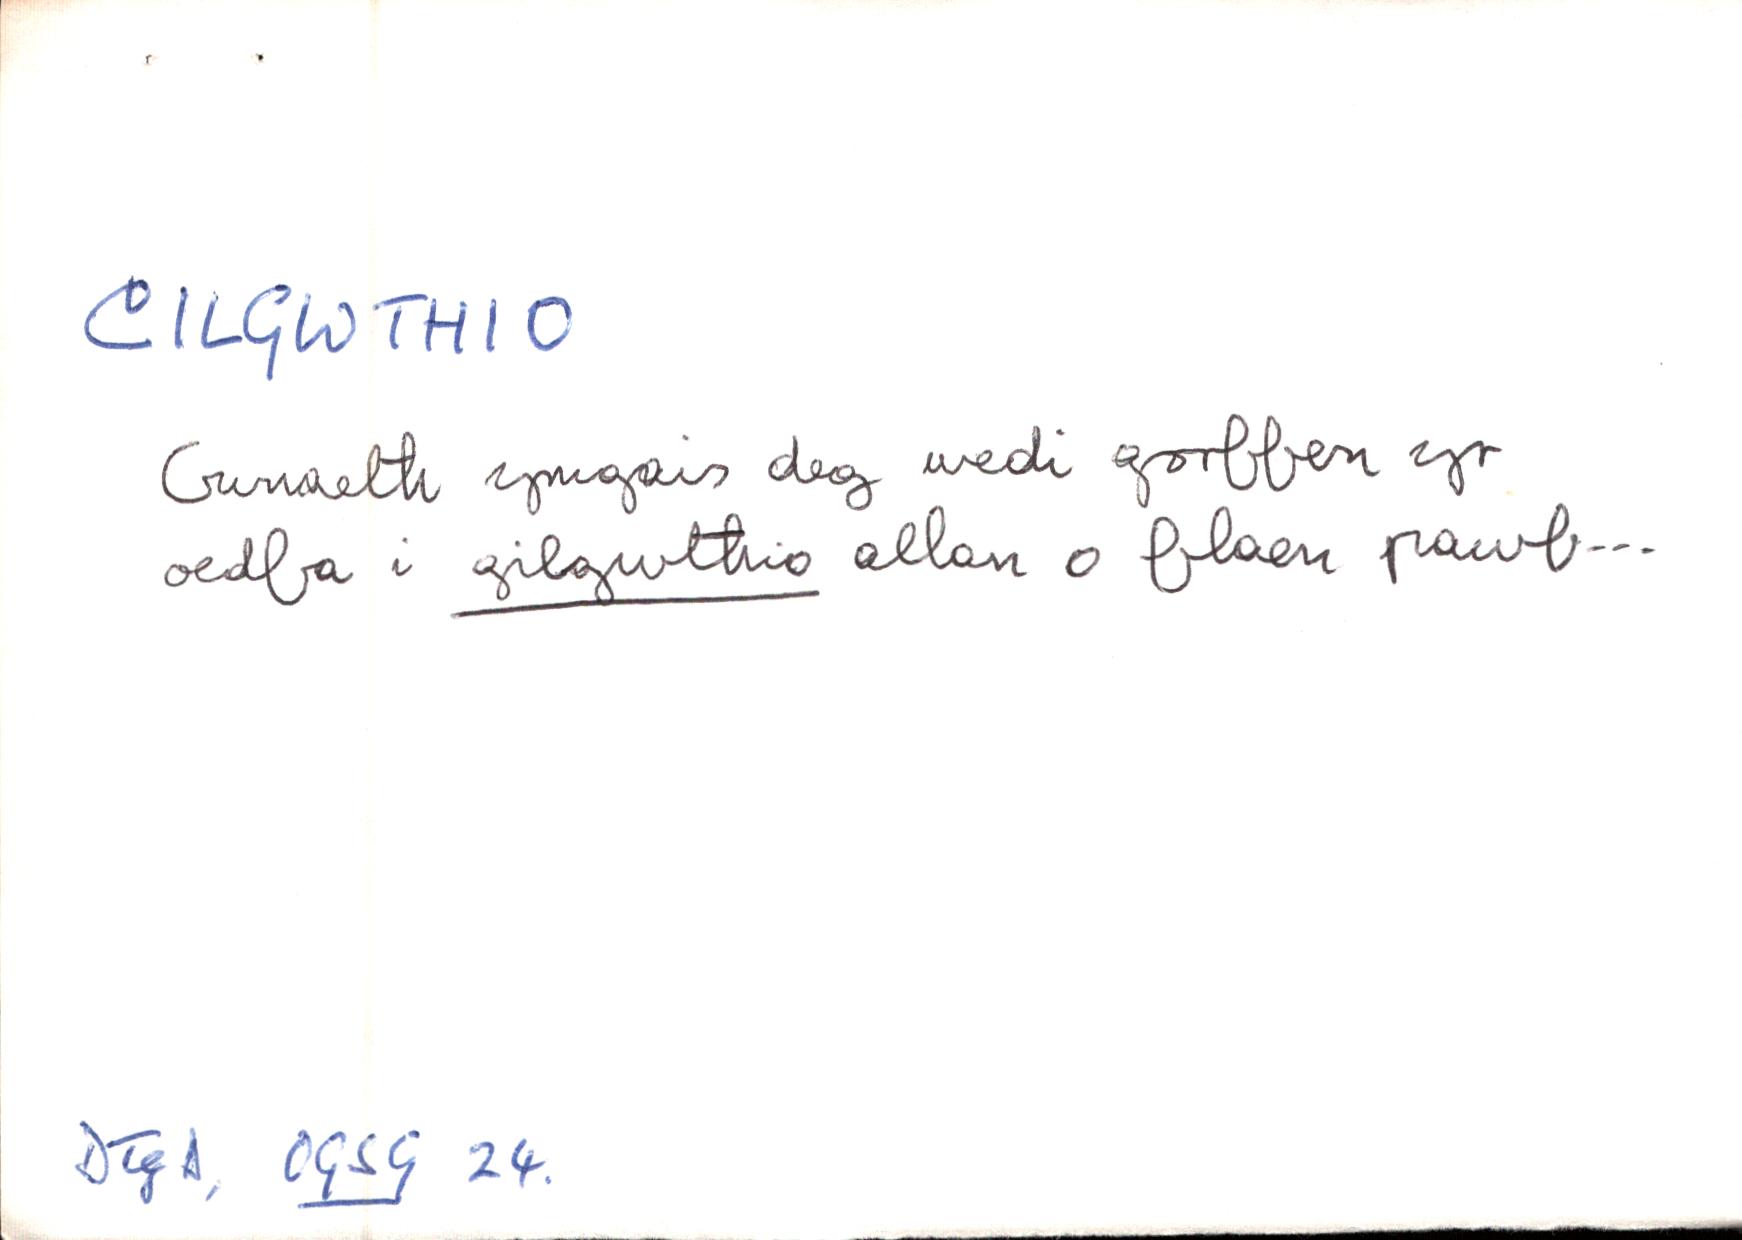 CILGWTHIO
Gwnaeth ymgais deg wedi gorffen yr
oedfa i gilgwthio allan o flaen pawb---
DTgD, OGSG 24.